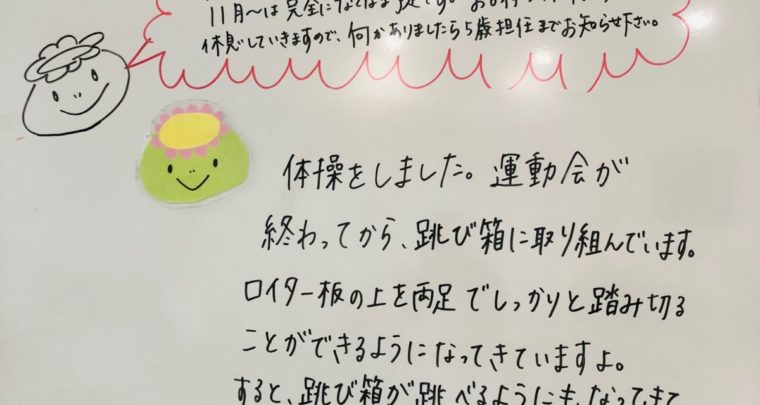 11月〜は完全になくなる予定です。お
休息していきますので、何かありましたら5歳担任までお知らせ下さい。
体操をしました。運動会が
終わってから、跳び箱に取り組んでいます。
ロイター板の上を両足でしっかりと踏み切る
ことができるようになってきていますよ。
すると、跳び箱が跳べるようにもなってきて